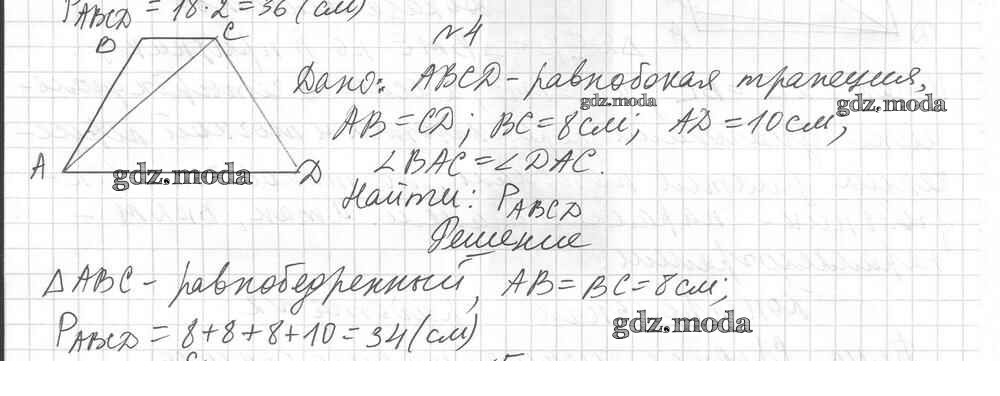 P ABCD = 18·2 = 36 (см)
B C
A D
№4
Дано: ABCD - равнобокая трапеция,
gdz.moda
gdz.moda
AB = CD; BC = 8 см; AD = 10 см;
∠BAC = ∠DAC.
gdz.moda
Найти: P ABCD
Решение
△ABC - равнобедренный, AB = BC = 8 см;
P ABCD = 8+8+8+10 = 34 (см)
gdz.moda